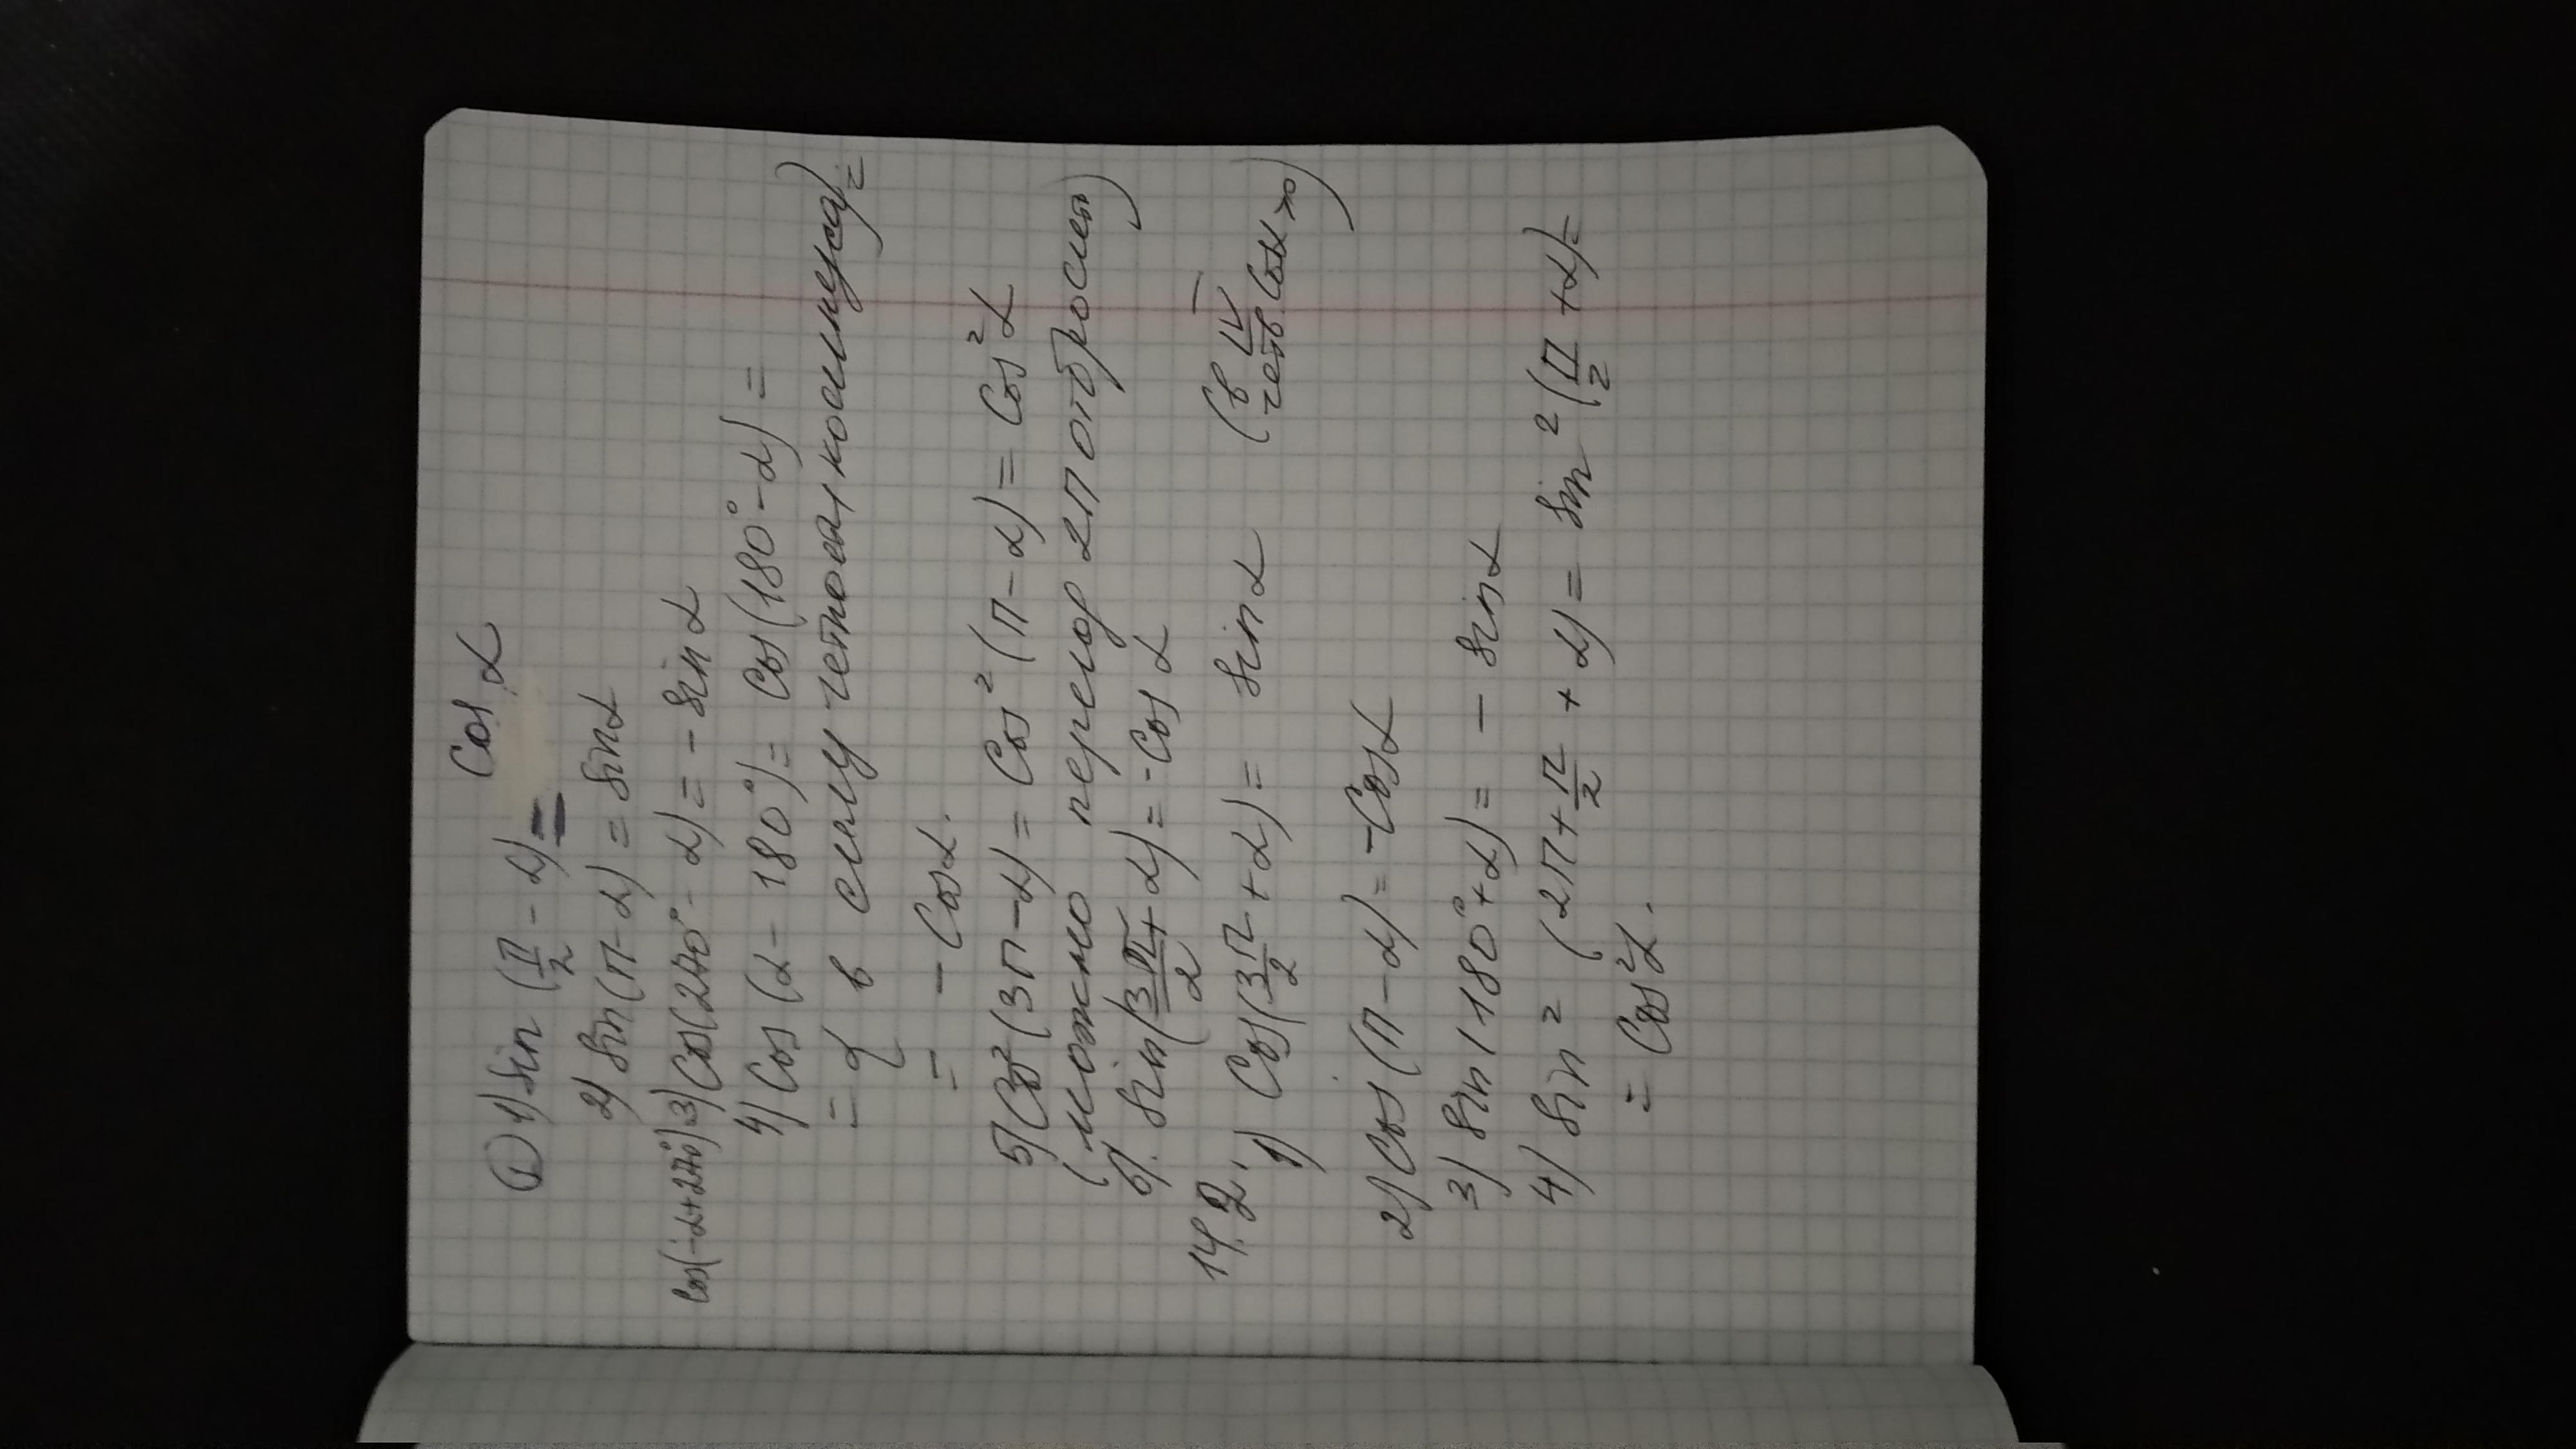 ① 1) sin (π/2 - α) = cos α
2) sin(π - α) = sinα
cos(-α+270°) 3) Cos(270° - α) = - sin α
4) Cos (α - 180°) = Cos(180° - α) =
= { в силу четности косинуса} =
= - Cosα.
5) Cos²(3π - α) = Cos²(π - α) = Cos²α
(можно период 2π отбросить)
6). sin(3π/2 + α) = -Cos α
14.2. 1) Cos(3π/2 + α) = sin α (в IV четв. Cosα >0)
2) Cos (π - α) = -Cosα
3) sin (180° + α) = - sinα
4) sin² (2π + π/2 + α) = sin² (π/2 + α) =
= Cos²α.